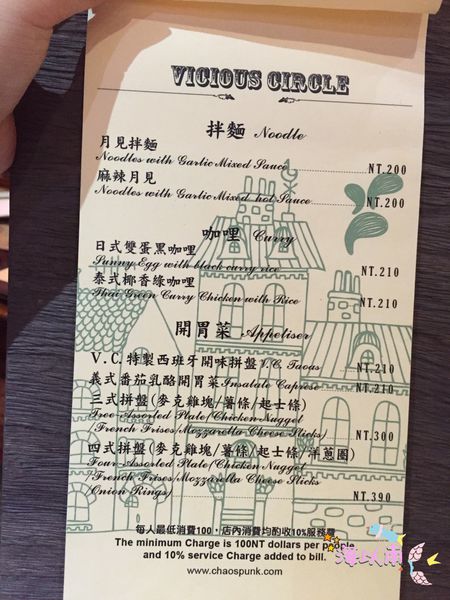 VICIOUS CIRCLE
拌麵 Noodle
月見拌麵
Noodles with Garlic Mixed Sauce NT.200
麻辣月見
Noodles with Garlic Mixed hot Sauce NT.200
咖哩 Curry
日式雙蛋黑咖哩
Sunny Egg with black curry rice NT.210
泰式椰香綠咖哩
Thai Green Curry Chicken with Rice NT.210
開胃菜 Appetiser
V.C.特製西班牙開味拼盤V.C. Taoas NT.210
義式番茄乳酪開胃菜Insalate Caprese NT.210
三式拼盤(麥克雞塊/薯條/起士條)
Tree-Assorted Plate/Chicken Nugget
/French Frises/Mozzarella Cheese Slicks) NT.300
四式拼盤(麥克雞塊/薯條/起士條/洋蔥圈)
Four-Assorted Plate/Chicken Nugget
/French Frises/Mozzarella Cheese Slicks
/Onion Rings) NT.390
每人最低消費100,店內消費均酌收10%服務費
The minimum Charge is 100NT dollars per people
and 10% service Charge added to bill.
www.chaospunk.com